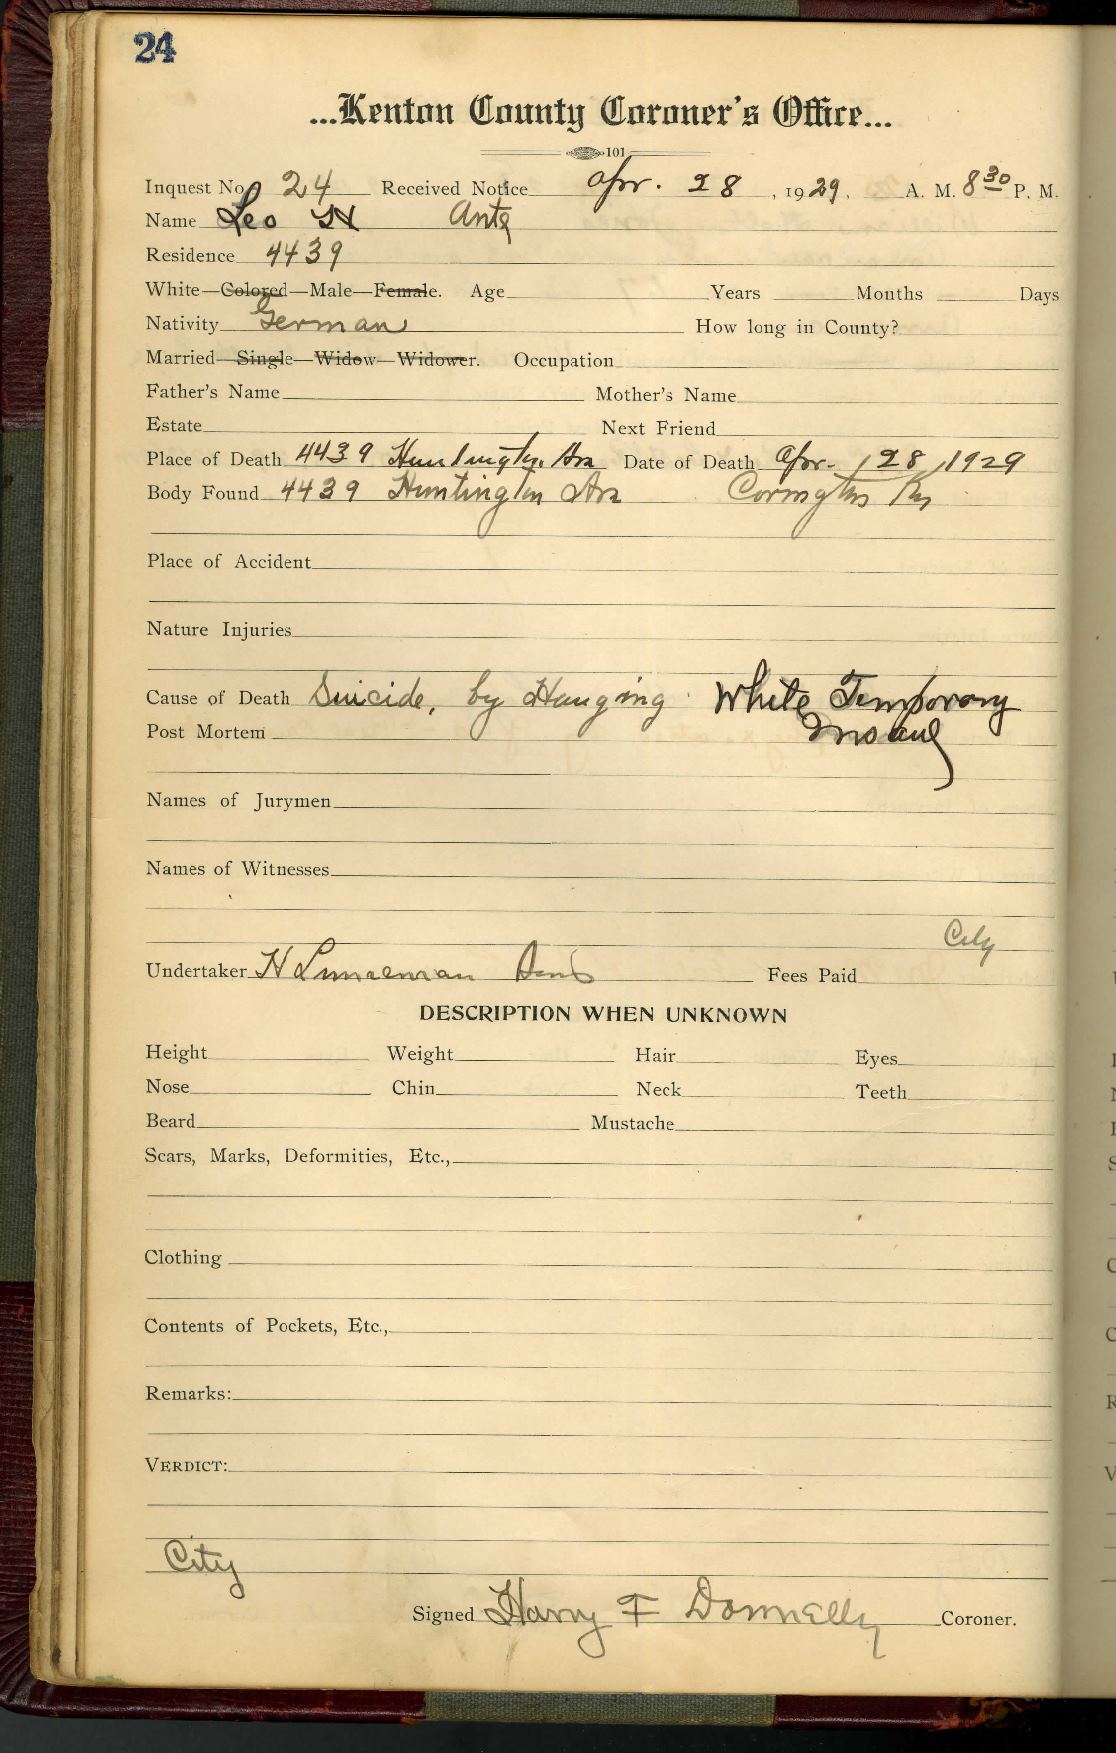 24
...Kenton County Coroner's Office...
101
Inquest No. 24 Received Notice Apr. 28, 1929, A. M. 8 30 P. M.
Name Leo H Antz
Residence 4439
White—Colored—Male—Female. Age Years Months Days
Nativity German How long in County?
Married—Single—Widow—Widower. Occupation
Father's Name Mother's Name
Estate Next Friend
Place of Death 4439 Huntington Ave Date of Death Apr. 28, 1929
Body Found 4439 Huntington Ave Covington Ky
Place of Accident
Nature Injuries
Cause of Death Suicide, by Hanging White Temporary
Post Mortem Insane
Names of Jurymen
Names of Witnesses
City
Undertaker H Linneman Sons Fees Paid
DESCRIPTION WHEN UNKNOWN
Height Weight Hair Eyes
Nose Chin Neck Teeth
Beard Mustache
Scars, Marks, Deformities, Etc.,
Clothing
Contents of Pockets, Etc.,
Remarks:
VERDICT:
City
Signed Harry F Donnelly Coroner.